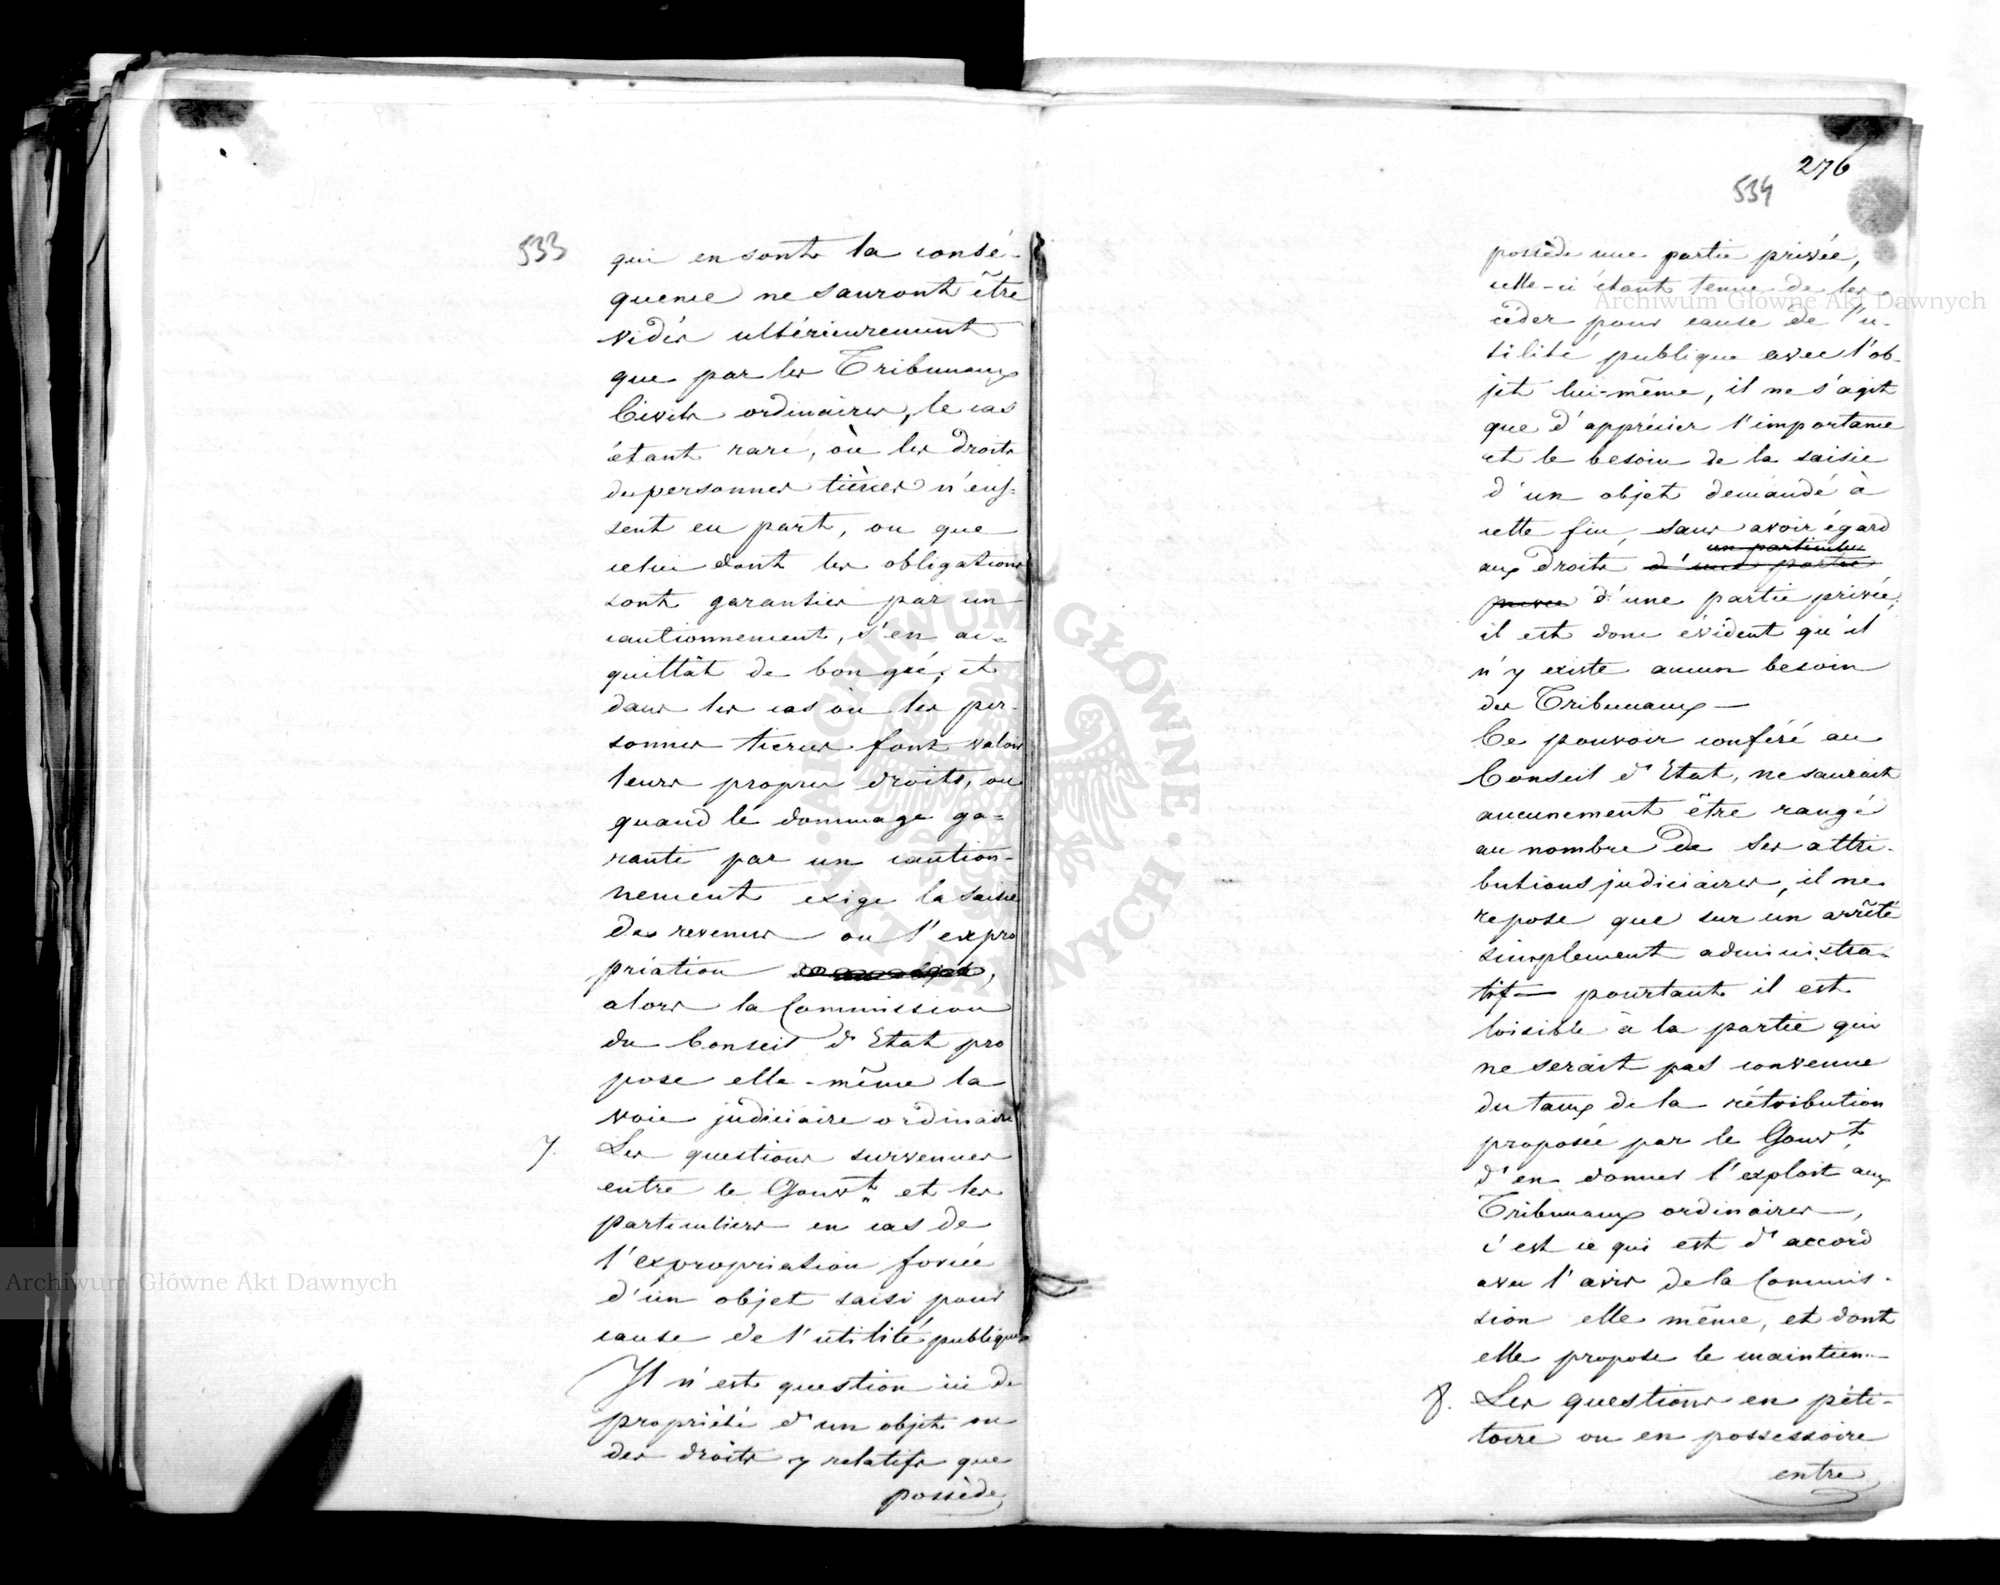 533
qui en sont la consé-
quence ne sauront être
vidés ultérieurement
que par les Tribunaux
Civils ordinaires, le cas
étant rare, où les droits
des personnes tièrces n'eus-
sent eu part, ou que
celui dont les obligations
sont garanties par un
cautionnement, s'en ac-
quittât de bon gré; et
dans les cas où les per-
sonnes tierces font valoir
leurs propres droits, ou
quand le dommage ga-
ranti par un caution-
nement exige la saisie
des revenus ou l'expro
priation
alors la Commission
du Conseil d'Etat pro
pose elle-même la
voie judiciaire ordinaire
7. Les questions survenues
entre le Gouvt et les
particuliers en cas de
l'expropriation forcée
d'un objet saisi pour
cause de l'utilité publique
Il n'est question ici de
propriété d'un objet ou
des droits y relatifs que
possède
276
534
possède une partie privée,
celle-ci étant tenue de les
céder pour cause de l'u-
tilité publique avec l'ob-
jet lui-même, il ne s'agit
que d'apprécier l'importance
et le besoin de la saisie
d'un objet demandé à
cette fin, sans avoir égard
un particulier
aux droits d'une partie
privée d'une partie privée;
il est donc évident qu'il
n'y existe aucun besoin
des Tribunaux —
Ce pouvoir conféré au
Conseil d'Etat, ne saurait
aucunement être rangé
au nombre de ses attri-
butions judiciaires, il ne
repose que sur un arrêté
simplement administra-
tif — pourtant il est
loisible à la partie qui
ne serait pas convenue
du taux de la rétribution
proposée par le Gouvt,
d'en donner l'exploit aux
Tribunaux ordinaires,
c'est ce qui est d'accord
avec l'avis de la Commis-
sion elle même, et dont
elle propose le maintien.—
8. Les questions en péti-
toire ou en possessoire
entre
Archiwum Główne Akt Dawnych
Archiwum Główne Akt Dawnych
ARCHIWUM GŁÓWNE AKT DAWNYCH